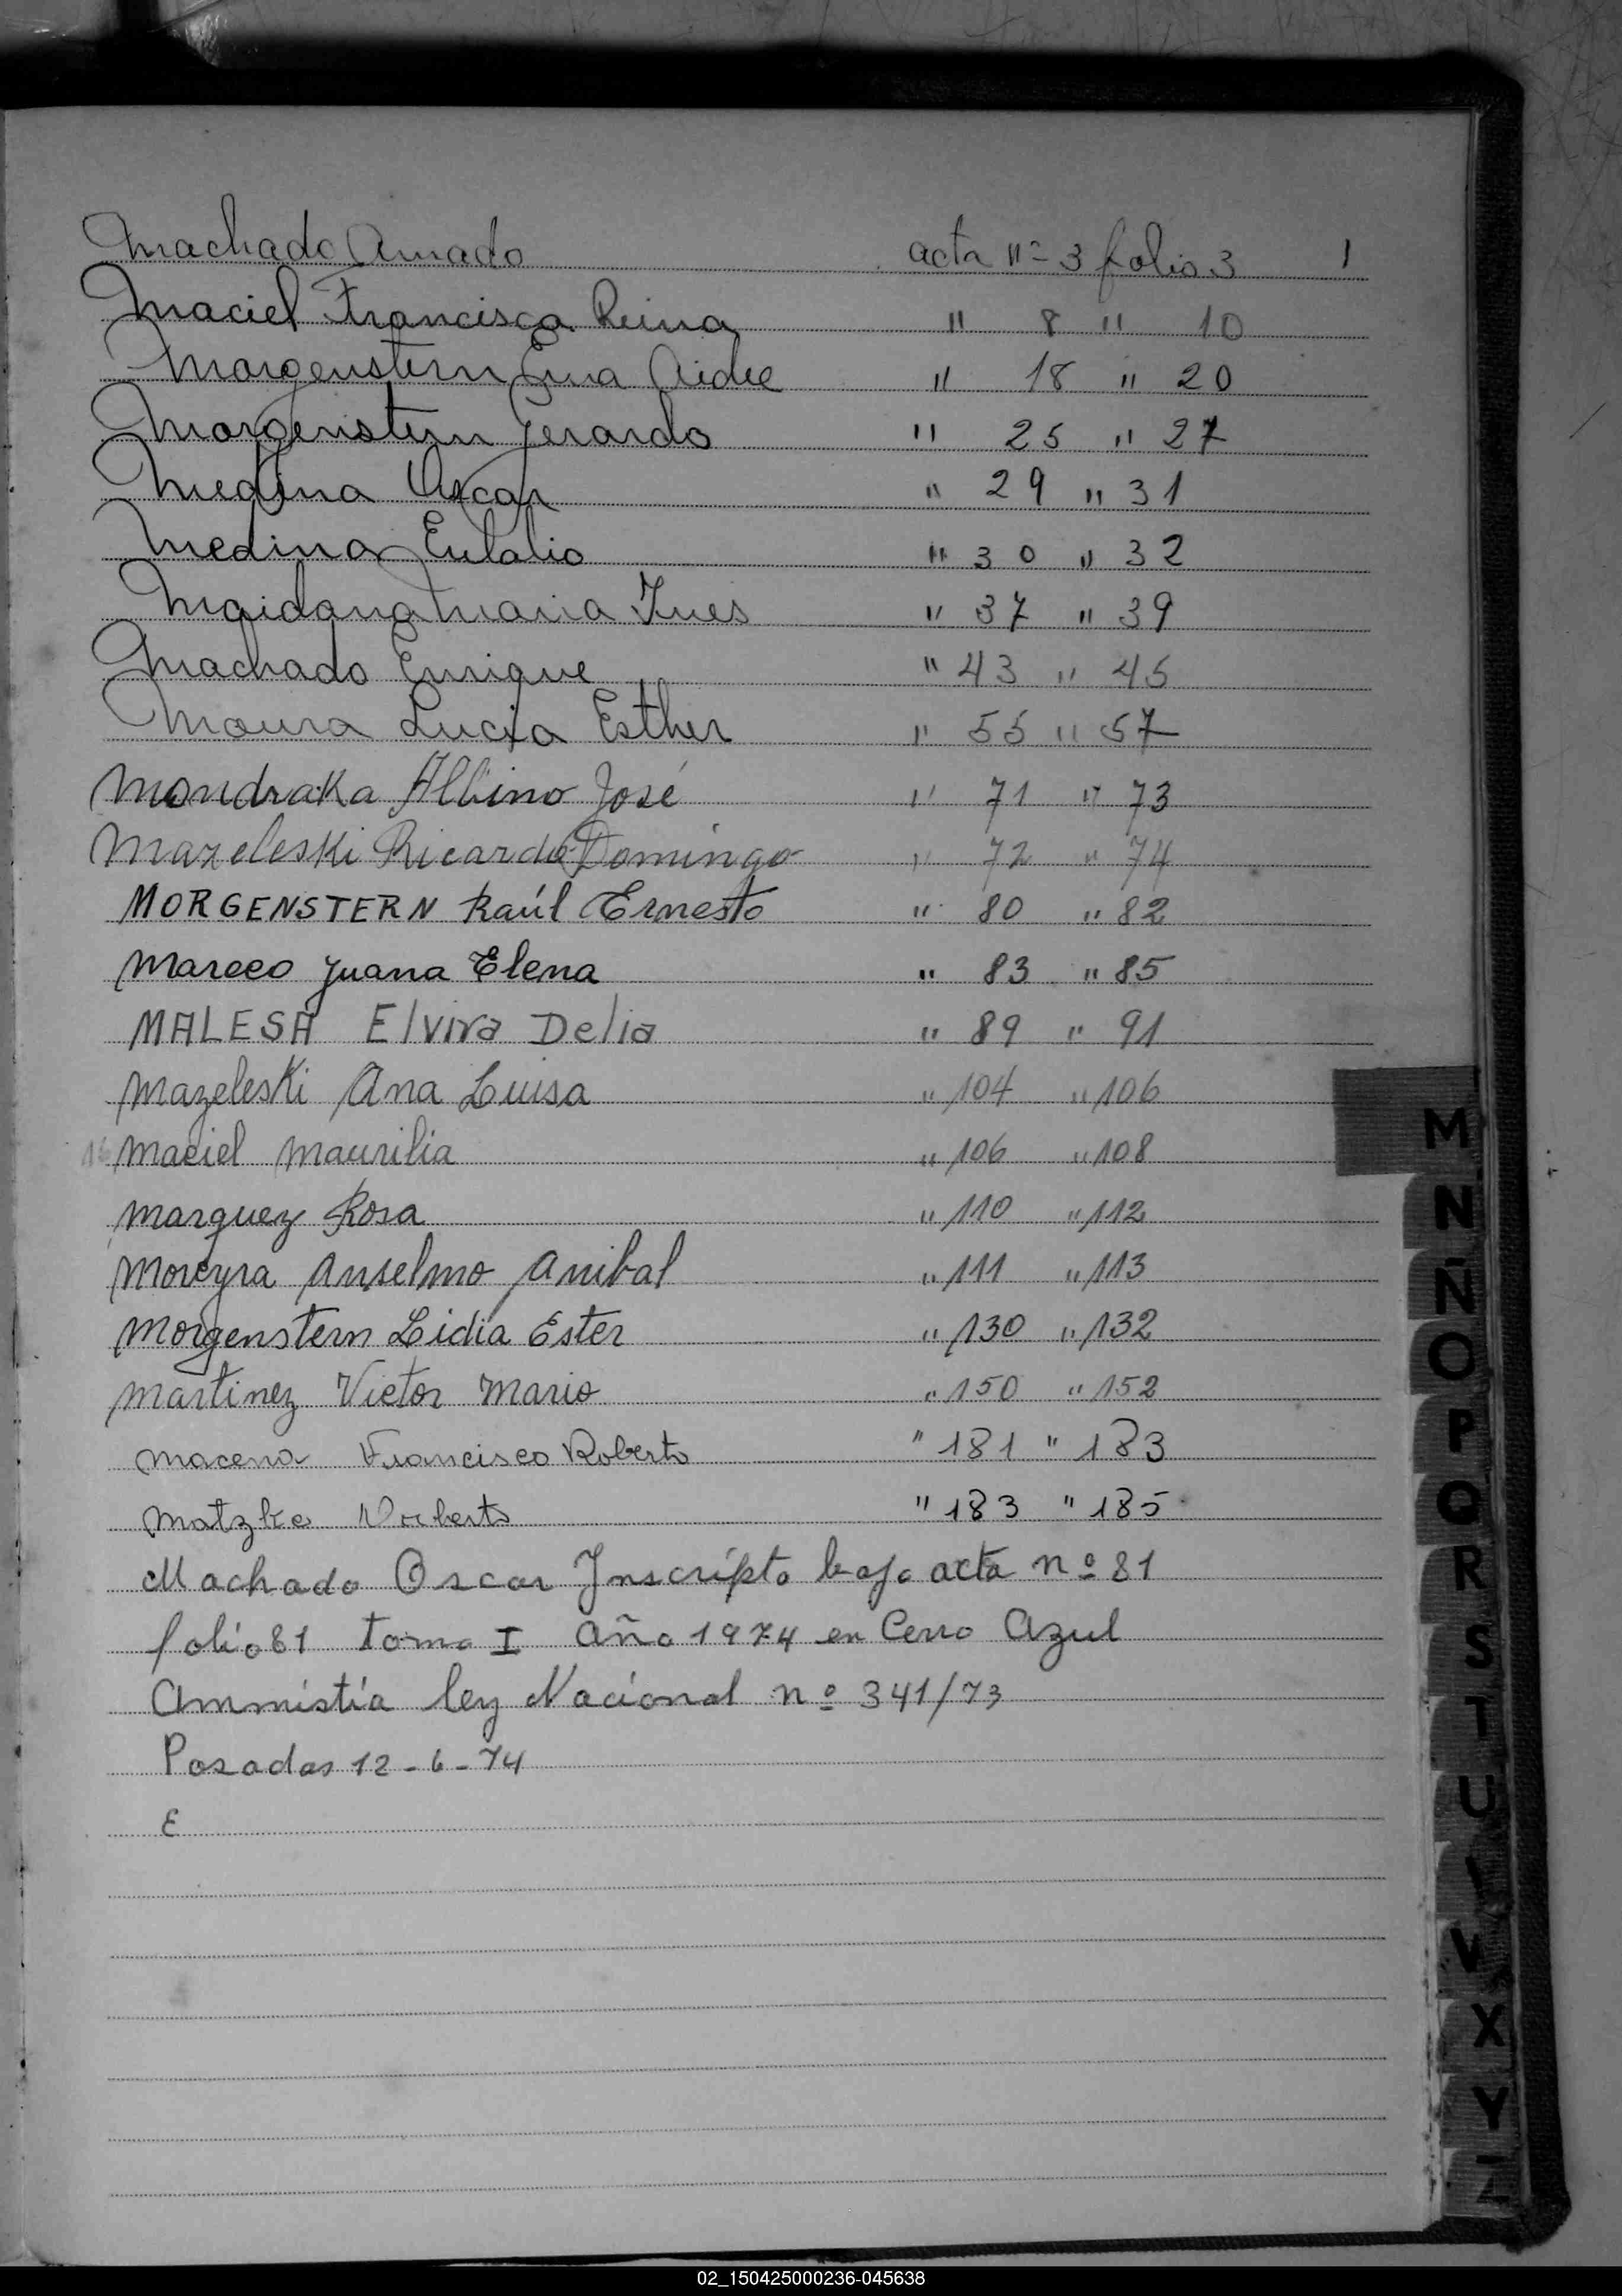 Machado Amado acta nº 3 folio 3 1
Maciel Francisca Reina " 8 " 10
Morgenstern Ema Aidee " 18 " 20
Morgenstern Gerardo " 25 " 27
Medina Oscar " 29 " 31
Medina Eulalio " 30 " 32
Maidana Maria Ines " 37 " 39
Machado Enrique " 43 " 45
Moura Lucia Esther " 55 " 57
Mondraka Albino José " 71 " 73
Mazeleski Ricardo Domingo " 72 " 74
MORGENSTERN Raúl Ernesto " 80 " 82
Mareco Juana Elena " 83 " 85
MALESA Elvira Delia " 89 " 91
Mazeleski Ana Luisa " 104 " 106
16 Maciel Maurilia " 106 " 108
Marquez Rosa " 110 " 112
Moreyra Anselmo Anibal " 111 " 113
Morgenstern Lidia Ester " 130 " 132
Martinez Victor Mario " 150 " 152
Macena Francisco Roberto " 181 " 183
Matzke Norberto " 183 " 185
Machado Oscar Inscripto bajo acta nº 81
folio 81 Tomo I Año 1974 en Cerro Azul
Ammistía ley Nacional nº 341/73
Posadas 12-6-74
E
M
N
Ñ
O
P
Q
R
S
T
U
V
X
Y
Z
02_150425000236-045638